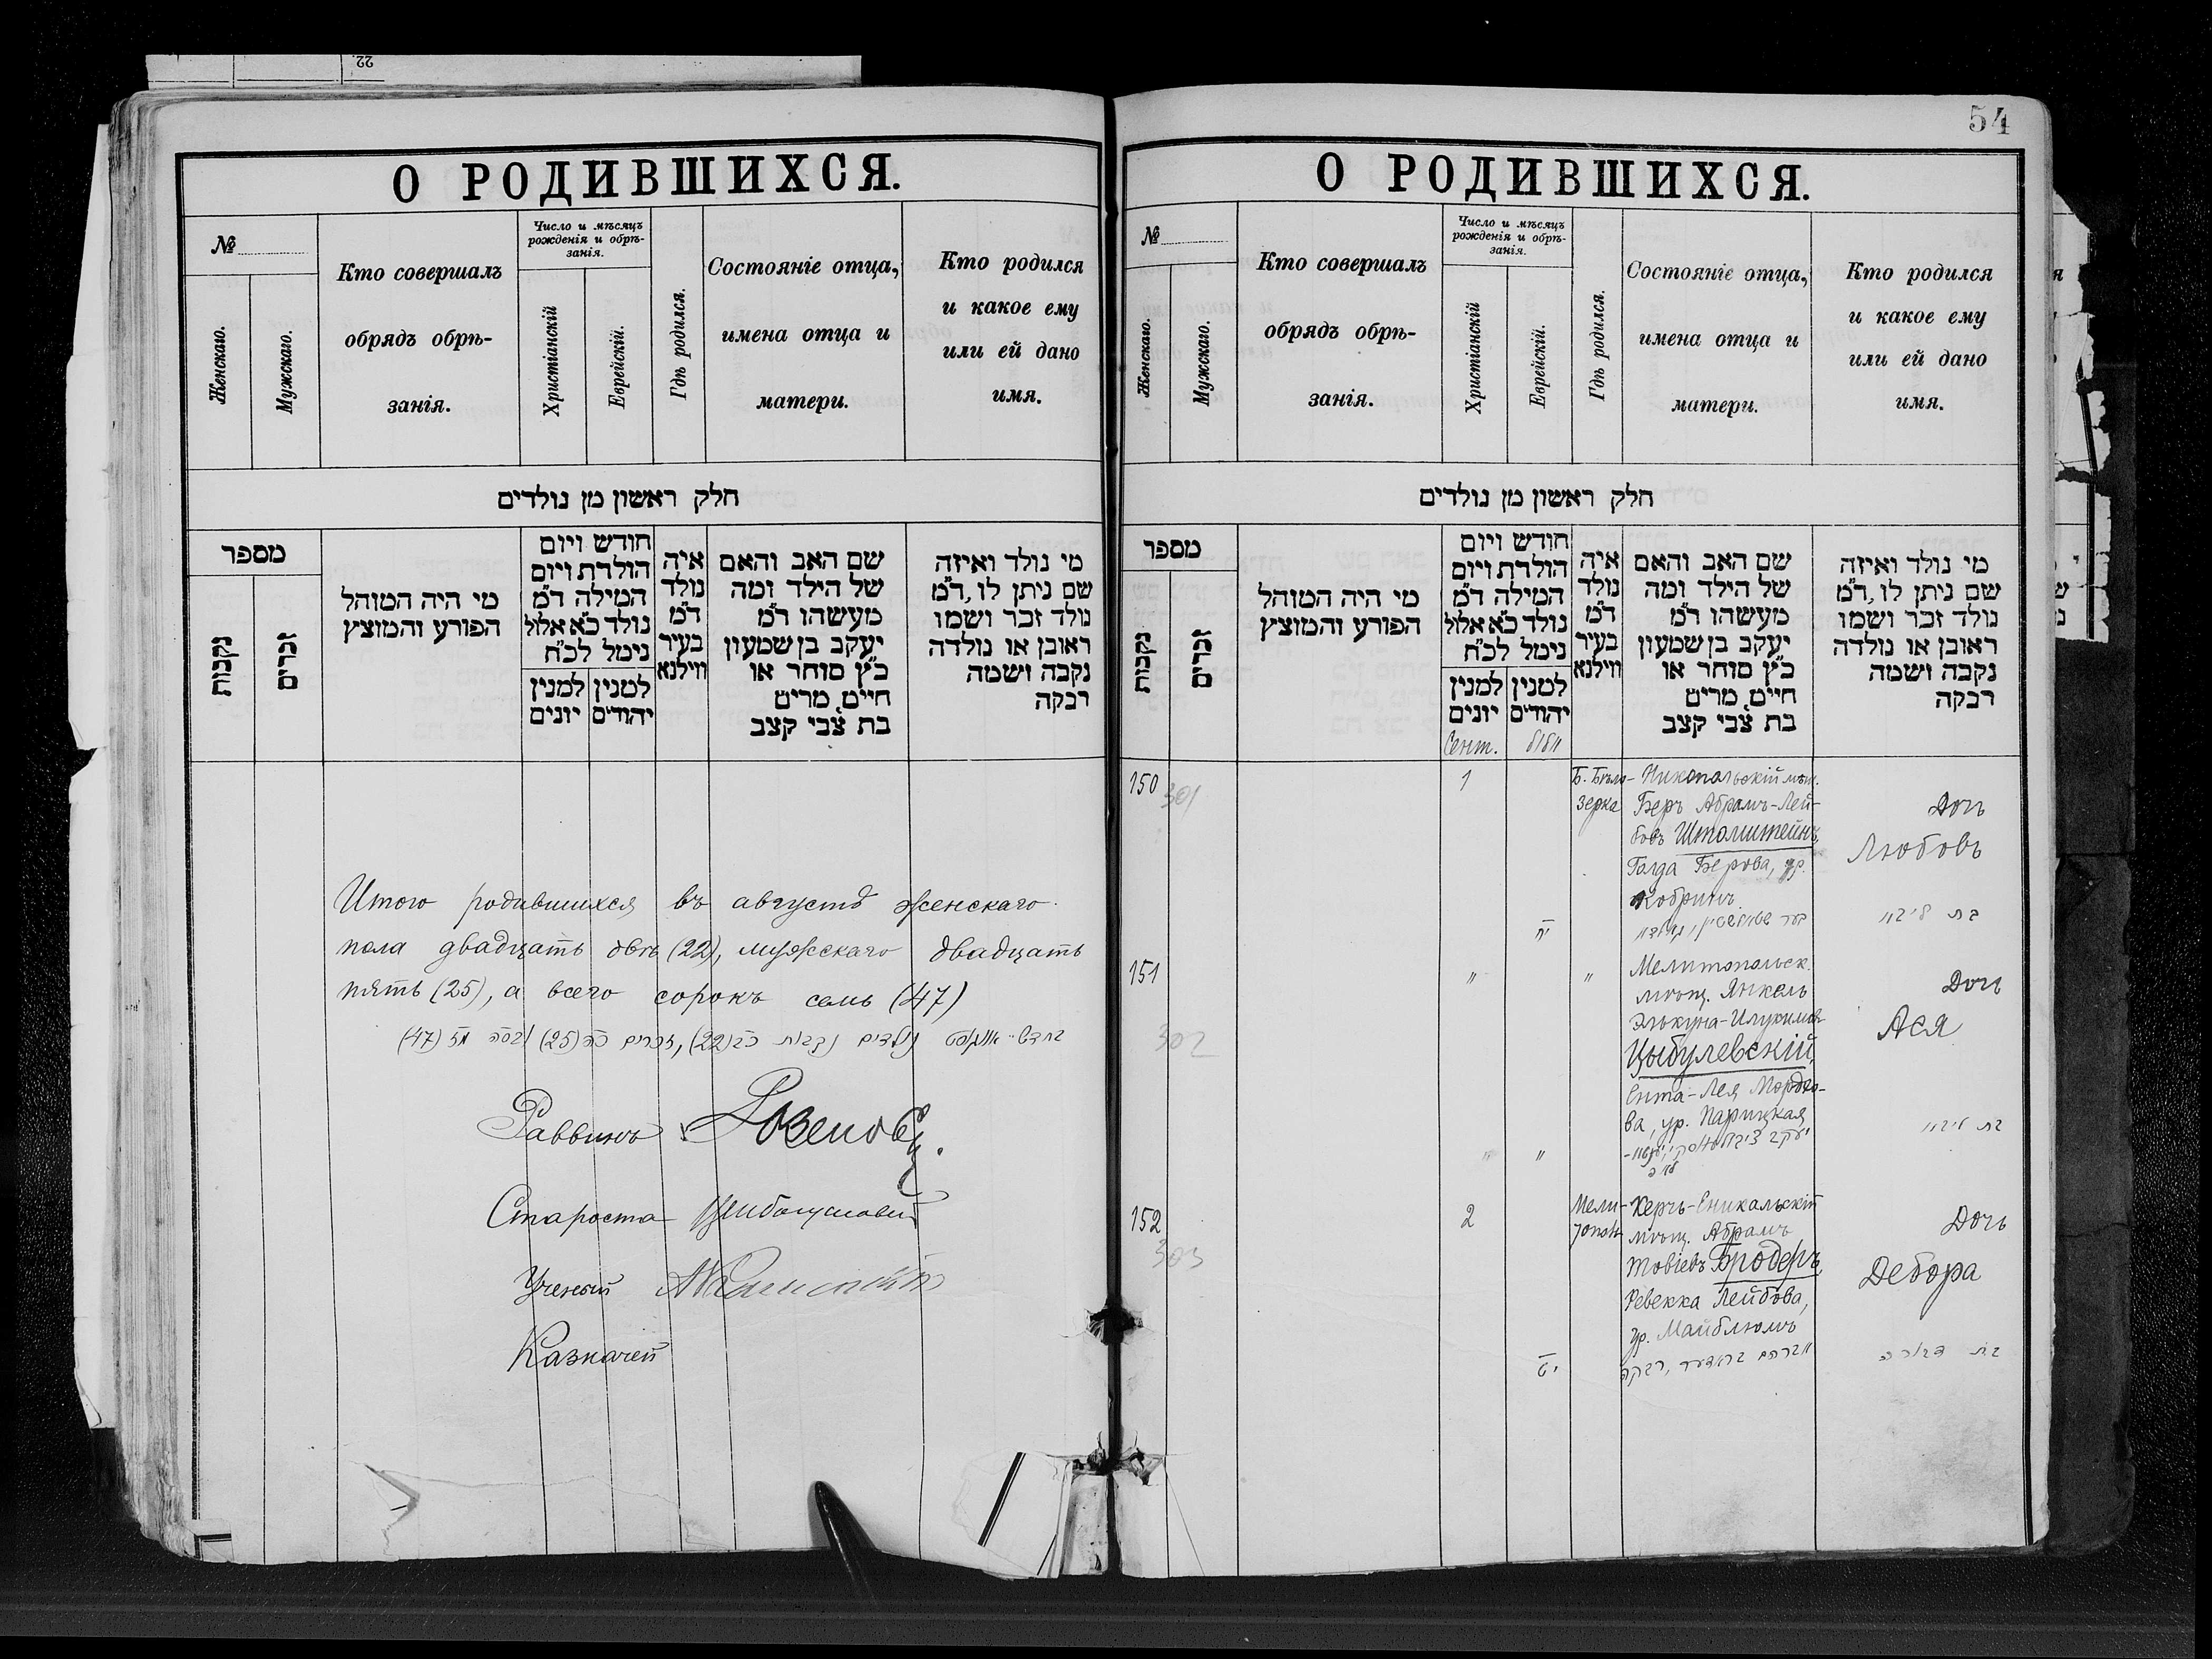 22.
О РОДИВШИХСЯ.
№
Женскаго.
Мужскаго.
Кто совершалъ
обрядъ обрѣ-
занія.
Число и мѣсяцъ
рожденія и обрѣ-
занія.
Христіанскій
Еврейскій.
Гдѣ родился.
Состояніе отца,
имена отца и
матери.
Кто родился
и какое ему
или ей дано
имя.
חלק ראשון מן נולדים
מספר
נקבות
זכרים
מי היה המוהל
הפורע והמוצץ
חודש ויום
הולדת ויום
המילה ד"מ
נולד כ"א אלול
נימל לכ"ח
למנין יונים
למנין יהודים
איה
נולד
ד"מ
בעיר
ווילנא
שם האב והאם
של הילד ומה
מעשהו ד"מ
יעקב בן שמעון
כ"ץ סוחר או
חיים, מרים
בת צבי קצב
מי נולד ואיזה
שם ניתן לו, ד"מ
נולד זכר ושמו
ראובן או נולדה
נקבה ושמה
רבקה
Итого родившихся въ августѣ женскаго
пола двадцать двѣ (22), мужскаго двадцать
пять (25), а всего сорокъ семь (47)
בחדש אוגוסט נולדים נקבות כב (22), זכרים כה (25) ובסה מז (47)
Раввинъ
Староста
Ученый
Казначей
54
О РОДИВШИХСЯ.
№
Женскаго.
Мужскаго.
Кто совершалъ
обрядъ обрѣ-
занія.
Число и мѣсяцъ
рожденія и обрѣ-
занія.
Христіанскій
Еврейскій.
Гдѣ родился.
Состояніе отца,
имена отца и
матери.
Кто родился
и какое ему
или ей дано
имя.
חלק ראשון מן נולדים
מספר
נקבות
זכרים
מי היה המוהל
הפורע והמוצץ
חודש ויום
הולדת ויום
המילה ד"מ
נולד כ"א אלול
נימל לכ"ח
למנין יונים
למנין יהודים
איה
נולד
ד"מ
בעיר
ווילנא
שם האב והאם
של הילד ומה
מעשהו ד"מ
יעקב בן שמעון
כ"ץ סוחר או
חיים, מרים
בת צבי קצב
מי נולד ואיזה
שם ניתן לו, ד"מ
נולד זכר ושמו
ראובן או נולדה
נקבה ושמה
רבקה
Сент.
אלול
150
301
1
Б. Бѣло-
зерка
Никопольскій мѣщ.
Беръ Абрамъ-Лей-
бовъ Штольштейнъ,
Голда Берова, ур.
Кобринъ.
יח
Дочь
Любовь
בת ליבא
151
302
"
"
Мелитопольск.
мѣщ. Янкель
Цыбулевскій,
Ента-Лея Мордко-
ва, ур. Парицкая
"
"
לאה
Дочь
Ася
152
303
2
Мели-
тополь
Керчь-Еникальскій
мѣщ. Абрамъ
Товіевъ Бродеръ,
Ревекка Лейбова,
ур. Майблюмъ
יט
אברהם בראדער, רבקה
Дочь
Дебора
בת דבורה